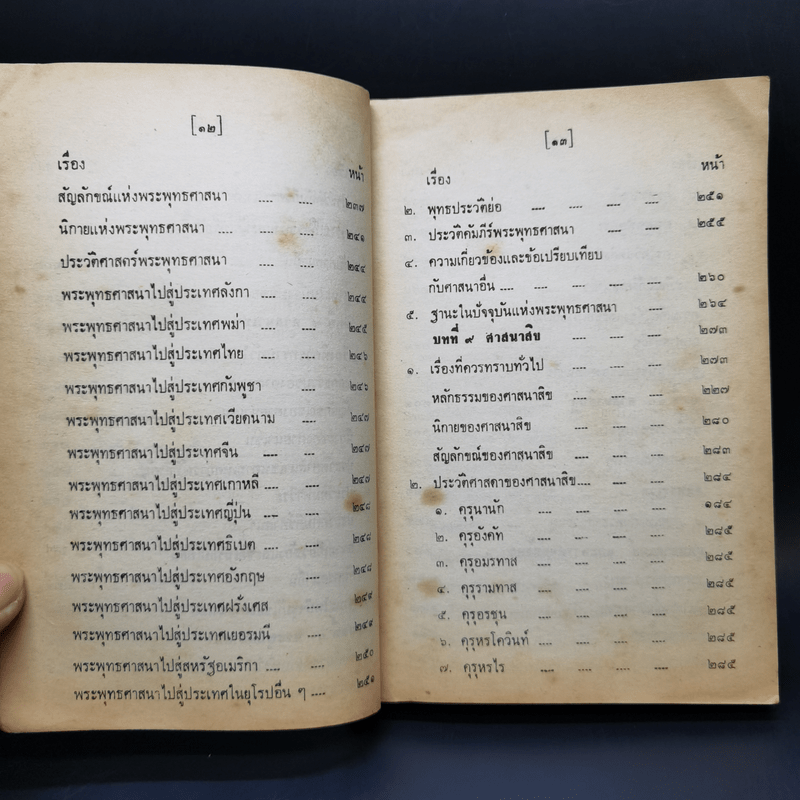 [๑๒]
เรื่อง หน้า
สัญลักขณ์แห่งพระพุทธศาสนา .... .... ๒๓๗
นิกายแห่งพระพุทธศาสนา .... .... ๒๔๑
ประวัติศาสตร์พระพุทธศาสนา .... .... ๒๔๔
พระพุทธศาสนาไปสู่ประเทศลังกา .... .... ๒๔๔
พระพุทธศาสนาไปสู่ประเทศพม่า .... .... ๒๔๕
พระพุทธศาสนาไปสู่ประเทศไทย .... .... ๒๔๖
พระพุทธศาสนาไปสู่ประเทศกัมพูชา .... ๒๔๖
พระพุทธศาสนาไปสู่ประเทศเวียดนาม .... ๒๔๗
พระพุทธศาสนาไปสู่ประเทศจีน .... .... ๒๔๗
พระพุทธศาสนาไปสู่ประเทศเกาหลี .... ๒๔๗
พระพุทธศาสนาไปสู่ประเทศญี่ปุ่น .... .... ๒๔๘
พระพุทธศาสนาไปสู่ประเทศธิเบต .... .... ๒๔๘
พระพุทธศาสนาไปสู่ประเทศอังกฤษ .... ๒๔๘
พระพุทธศาสนาไปสู่ประเทศฝรั่งเศส .... ๒๔๙
พระพุทธศาสนาไปสู่ประเทศเยอรมนี .... ๒๔๙
พระพุทธศาสนาไปสู่สหรัฐอเมริกา .... .... ๒๕๐
พระพุทธศาสนาไปสู่ประเทศในยุโรปอื่น ๆ .... ๒๕๑
[๑๓]
เรื่อง หน้า
๒. พุทธประวัติย่อ .... .... .... .... ๒๕๑
๓. ประวัติคัมภีร์พระพุทธศาสนา .... .... ๒๕๕
๔. ความเกี่ยวข้องและข้อเปรียบเทียบ
กับศาสนาอื่น .... .... .... .... ๒๖๐
๕. ฐานะในปัจจุบันแห่งพระพุทธศาสนา .... ๒๖๔
บทที่ ๙ ศาสนาสิข .... .... ๒๗๓
๑. เรื่องที่ควรทราบทั่วไป .... .... .... ๒๗๓
หลักธรรมของศาสนาสิข .... .... ๒๒๗
นิกายของศาสนาสิข .... .... ๒๘๐
สัญลักขณ์ของศาสนาสิข .... .... ๒๘๓
๒. ประวัติศาสดาของศาสนาสิข .... .... ๒๘๔
๑. คุรุนานัก .... .... .... .... ๑๘๔
๒. คุรุอังคัท .... .... .... .... ๒๘๕
๓. คุรุอมรทาส .... .... .... .... ๒๘๕
๔. คุรุรามทาส .... .... .... .... ๒๘๕
๕. คุรุอรชุน .... .... .... .... ๒๘๕
๖. คุรุหรโควินท์ .... .... .... .... ๒๘๕
๗. คุรุหรไร .... .... .... .... ๒๘๕